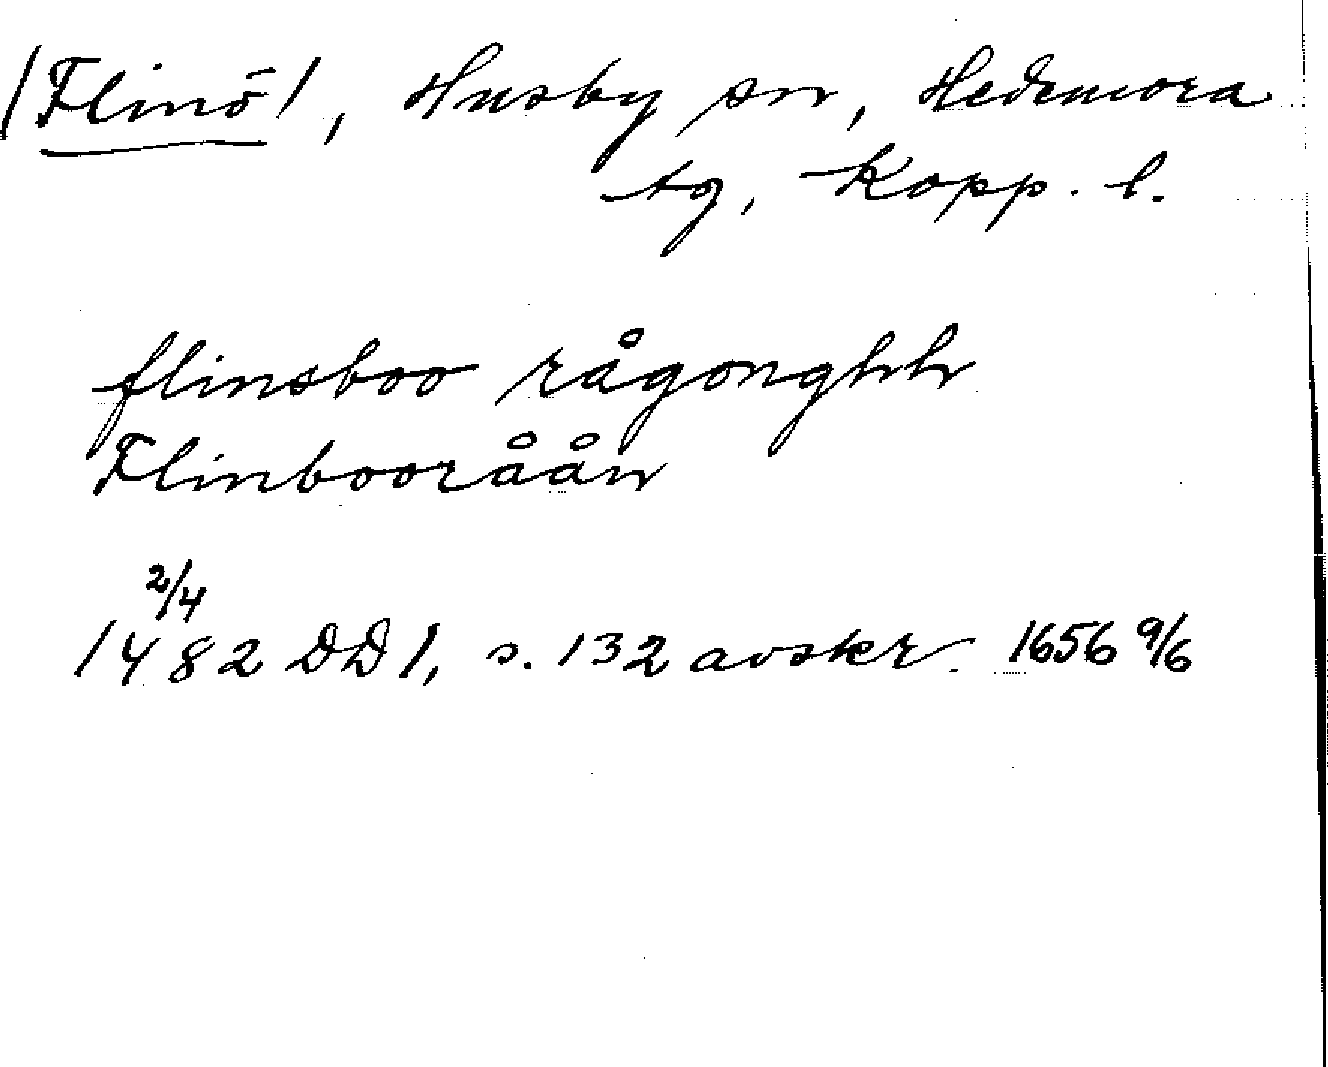 (Flinö), Husby sn, Hedemora
tg, Kopp. l.
flinsboo rågonghh
Flinbooråån
2/4
1482 DD 1, s. 132 avskr. 1656 9/6